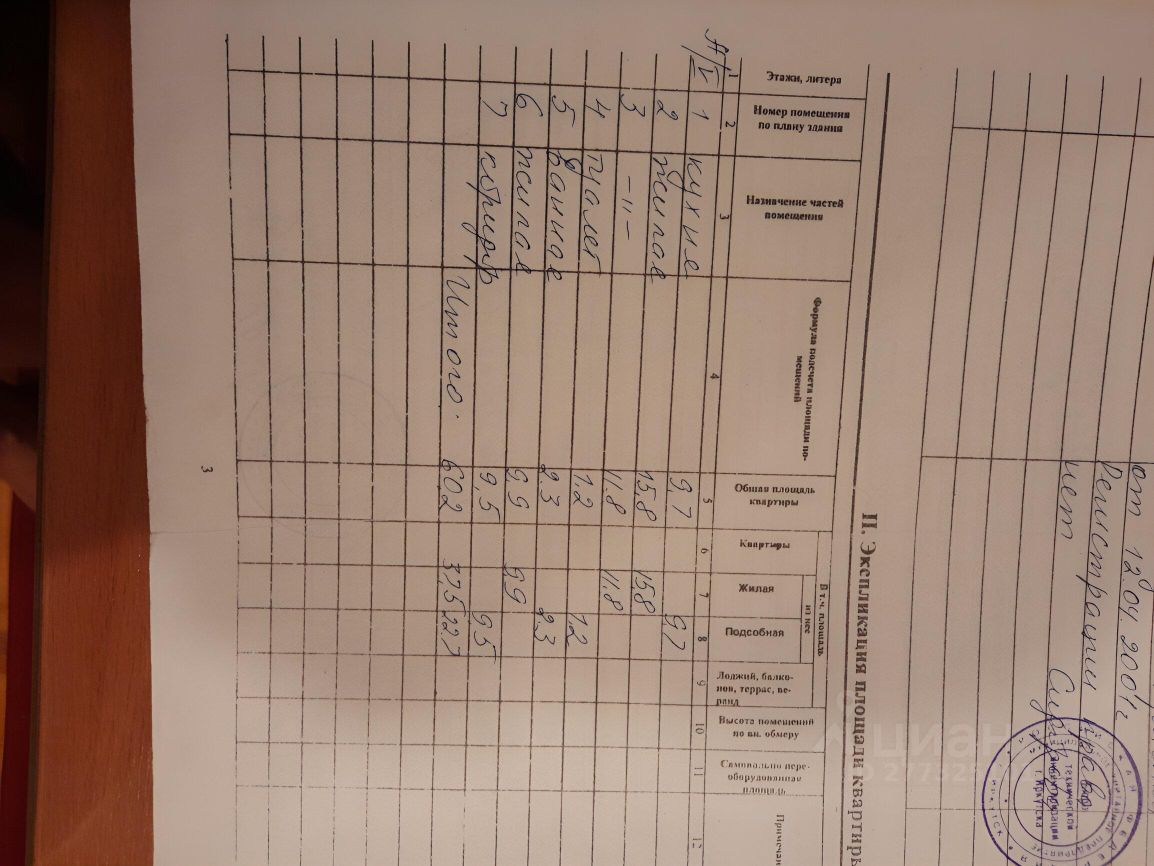 от 12.04.2001г
Регистрации права
нет
технической
инвентаризации
г. Иркутска
ЦИАН
II. Экспликация площади квартиры
Этажи, литера
Номер помещения по плану здания
Назначение частей помещения
Формула подсчета площади помещений
Общая площадь квартиры
В т.ч. площадь
из нее
Квартиры
Жилая
Подсобная
Лоджий, балконов, террас, веранд
Высота помещений по вн. обмеру
Самовольно переоборудованная площадь
Примечан
1 2 3 4 5 6 7 8 9 10 11 12
А/V 1 кухня 9,7 9,7
2 жилая 15,8 15,8
3 –"– 11,8 11,8
4 туалет 1,2 1,2
5 ванная 2,3 2,3
6 жилая 9,9 9,9
7 коридор 9,5 9,5
Итого: 60,2 37,5 22,7
3